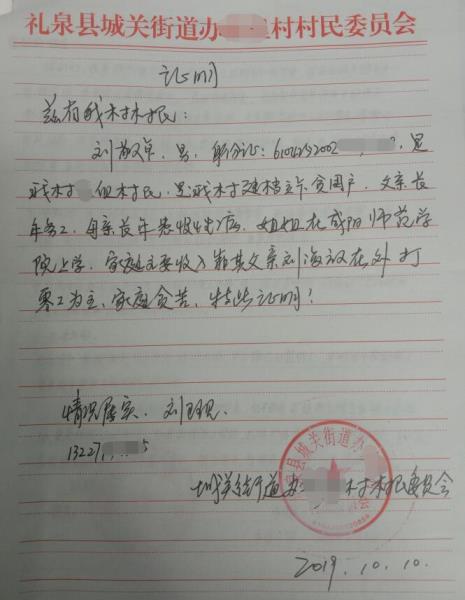 礼泉县城关街道办村村民委员会
证明
兹有我村村民：
刘 草，男，身份证：610425200
我村 组村民，是我村建档立卡贫困户，父亲长
年务工，母亲长年患 病，姐姐在咸阳师范学
院上学，家庭主要收入靠其父亲刘海 在外打
零工为主，家庭贫苦，特此证明！
情况属实，刘
13227 5
泉县城关街道办
城关街道办 村村民委员会
2019.10.10.